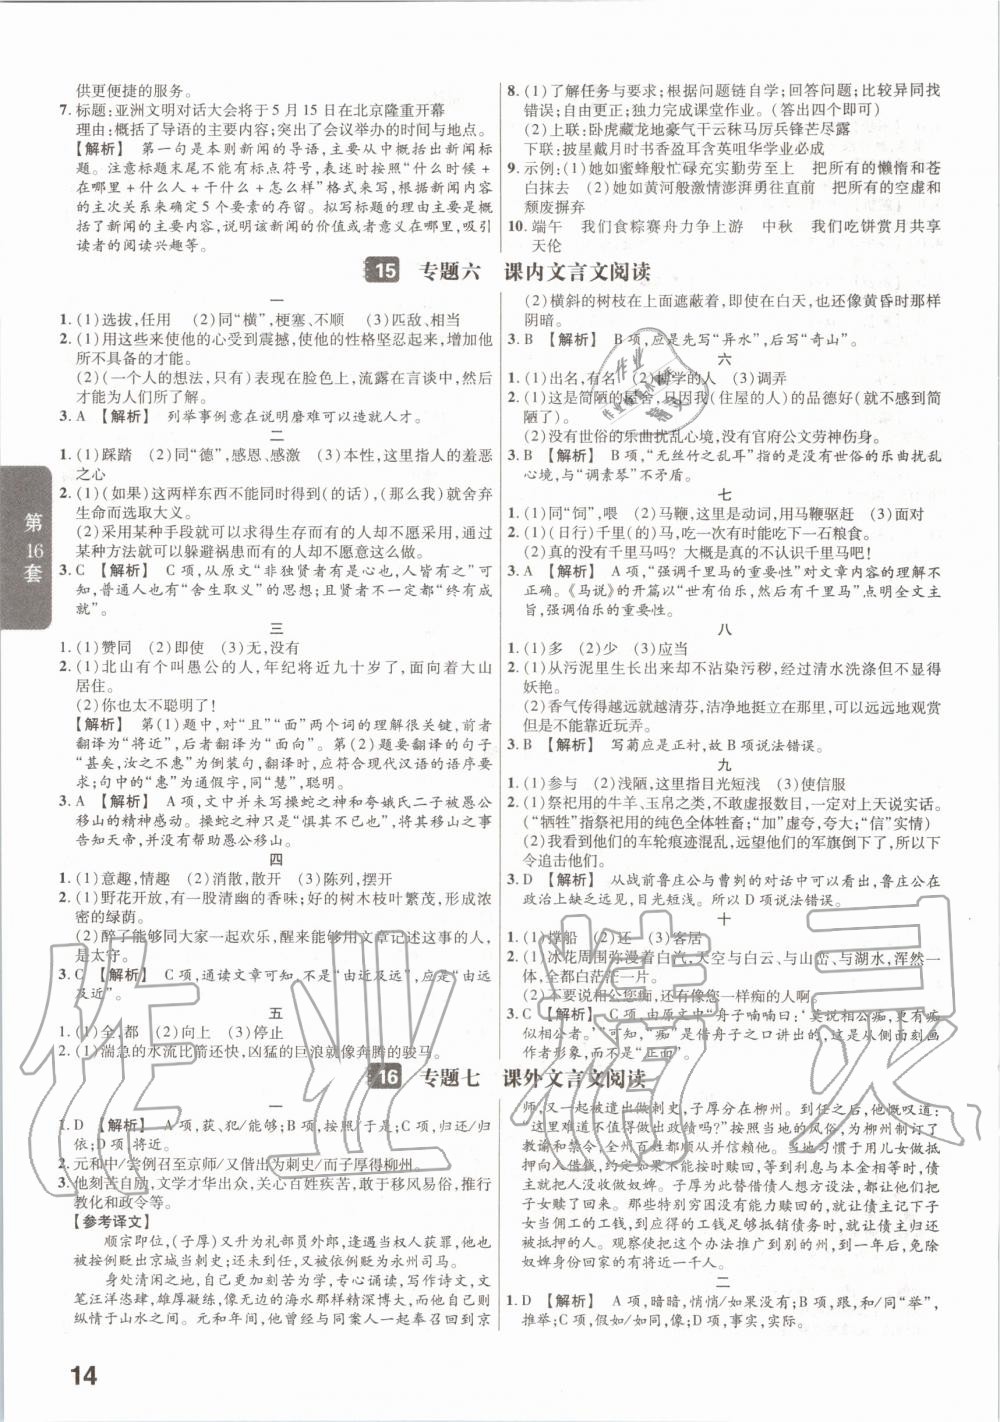 供更便捷的服务。
7. 标题:亚洲文明对话大会将于5月15日在北京隆重开幕
理由:概括了导语的主要内容;突出了会议举办的时间与地点。
【解析】 第一句是本则新闻的导语,主要从中概括出新闻标
题。注意标题末尾不能有标点符号,表述时按照“什么时候+
在哪里+什么人+干什么+怎么样”格式来写,根据新闻内容
的主次关系来确定5个要素的存留。拟写标题的理由主要是概
括了新闻的主要内容,说明该新闻的价值或者意义在哪里,吸引
读者的阅读兴趣等。
8. (1)了解任务与要求;根据问题链自学;回答问题;比较异同找
错误;自由更正;独力完成课堂作业。(答出四个即可)
(2)上联:卧虎藏龙地豪气干云秣马厉兵锋芒尽露
下联:披星戴月时书香盈耳含英咀华学业必成
9. 示例:(1)她如蜜蜂般忙碌充实勤劳至上 把所有的懒惰和苍
白抹去 (2)她如黄河般激情澎湃勇往直前 把所有的空虚和
颓废摒弃
10. 端午 我们食粽赛舟力争上游 中秋 我们吃饼赏月共享
天伦
15 专题六 课内文言文阅读
一
1. (1)选拔,任用 (2)同“横”,梗塞、不顺 (3)匹敌、相当
2. (1)用这些来使他的心受到震撼,使他的性格坚忍起来,增加他
所不具备的才能。
(2)(一个人的想法,只有)表现在脸色上,流露在言谈中,然后
才能为人们所了解。
3. A 【解析】 列举事例意在说明磨难可以造就人才。
二
1. (1)踩踏 (2)同“德”,感恩、感激 (3)本性,这里指人的羞恶
之心
2. (1)(如果)这两样东西不能同时得到(的话),(那么我)就舍弃
生命而选取大义。
(2)采用某种手段就可以求得生存而有的人却不愿采用,通过
某种方法就可以躲避祸患而有的人却不肯采用。
3. C 【解析】 C项,从原文“非独贤者有是心也,人皆有之”可
知,普通人也有“舍生取义”的思想;且贤者不一定都“终有成
就”。
三
1. (1)赞同 (2)即使 (3)无,没有
2. (1)北山有个叫愚公的人,年纪将近九十岁了,面向着大山
居住。
(2)你也太不聪明了!
【解析】 第(1)题中,对“且”“面”两个词的理解很关键,前者
翻译为“将近”,后者翻译为“面向”。第(2)题要翻译的句子
“甚矣,汝之不惠”为倒装句,翻译时,应符合现代汉语的语序要
求;句中的“惠”为通假字,同“慧”,聪明。
3. A 【解析】 A项,文中并未写操蛇之神和夸娥氏二子被愚公
移山的精神感动。操蛇之神只是“惧其不已”,将愚公移山之事
告知天帝,并没有帮助愚公移山。
四
1. (1)意趣,情趣 (2)消散,散开 (3)陈列,摆开
2. (1)野花开放,有一股清幽的香味;好的树木枝叶繁茂,形成浓
密的绿荫。
(2)醉了能够同大家一起欢乐,醒来能够用文章记述这事的人,
是太守。
3. C 【解析】 C项,通读文章可知,不是“由近及远”,应是“由远
及近”。
五
1. (1)全,都 (2)向上 (3)停止
2. (1)湍急的水流比箭还快,凶猛的巨浪就像奔腾的骏马。
(2)横斜的树枝在上面遮蔽着,即使在白天,也还像黄昏时那样
阴暗。
3. B 【解析】 B项,应是先写“异水”,后写“奇山”。
六
1. (1)出名,有名 (2)博学的人 (3)调弄
2. (1)这是简陋的屋舍,只因我(住屋的人)的品德好(就不感到简
陋了)。
(2)没有世俗的乐曲扰乱心境,没有官府公文劳神伤身。
3. B 【解析】 B项,“无丝竹之乱耳”指的是没有世俗的乐曲扰乱
心境,与“调素琴”不矛盾。
七
1. (1)同“饲”,喂 (2)马鞭,这里是动词,用马鞭驱赶 (3)面对
2. (1)(日行)千里(的)马,吃一次有时能吃下一石粮食。
(2)真的没有千里马吗? 大概是真的不认识千里马吧!
3. A 【解析】 A项,“强调千里马的重要性”对文章内容的理解不
正确。《马说》的开篇以“世有伯乐,然后有千里马”点明全文主
旨,强调伯乐的重要性。
八
1. (1)多 (2)少 (3)应当
2. (1)从污泥里生长出来却不沾染污秽,经过清水洗涤但不显得
妖艳。
(2)香气传得越远就越清芬,洁净地挺立在那里,可以远远地观赏
但是不能靠近玩弄。
3. B 【解析】 写菊应是正衬,故B项说法错误。
九
1. (1)参与 (2)浅陋,这里指目光短浅 (3)使信服
2. (1)祭祀用的牛羊、玉帛之类,不敢虚报数目,一定对上天说实话。
(“牺牲”指祭祀用的纯色全体牲畜;“加”虚夸,夸大;“信”实情)
(2)我看到他们的车轮痕迹混乱,远望他们的军旗倒下了,所以下
令追击他们。
3. D 【解析】 从战前鲁庄公与曹刿的对话中可以看出,鲁庄公在
政治上缺乏远见,目光短浅。所以D项说法错误。
十
1. (1)撑船 (2)还 (3)客居
2. (1)冰花周围弥漫着白汽,天空与白云、与山峦、与湖水,浑然一
体,全都白茫茫一片。
(2)不要说相公您痴,还有像您一样痴的人啊。
3. C 【解析】 C项,由原文中“舟子喃喃曰:‘莫说相公痴,更有痴
似相公者。’”可知,“痴”是借舟子之口讲出的,从侧面刻画
作者形象,而不是“正面”。
16 专题七 课外文言文阅读
一
1. D 【解析】 A项,获、犯/能够;B项,按照/于是;C项,归还/归
依;D项,将近。
2. 元和中/尝例召至京师/又偕出为刺史/而子厚得柳州。
3. 他刻苦自励,文学才华出众,关心百姓疾苦,敢于移风易俗,推行
教化和政令等。
【参考译文】
顺宗即位,(子厚)又升为礼部员外郎,逢遇当权人获罪,他也
被按例贬出京城当刺史,还未到任,又被依例贬为永州司马。
身处清闲之地,自己更加刻苦为学,专心诵读,写作诗文,文
笔汪洋恣肆,雄厚凝练,像无边的海水那样精深博大。而他自己则
纵情于山水之间。元和年间,他曾经与同案人一起奉召回到京
师,又一起被遣出做刺史,子厚分在柳州。到任之后,他慨叹道:
“这里难道不值得做出政绩吗?”按照当地的风俗,为柳州制订了
教谕和禁令,全州百姓都顺从并信赖他。当地习惯于用儿女做抵
押向人借钱,约定如果不能按时赎回,等到利息与本金相等时,债
主就把人质没收做奴婢。子厚为此替借债人想方设法,都让他们把
子女赎了回来。那些特别穷困没有能力赎回的,就让债主记下子
女当佣工的工钱,到应得的工钱足够抵销债务时,就让债主归还
被抵押的人质。观察使把这个办法推广到别的州,一年后,免除
奴婢身份回家的有将近一千人。
二
1. D 【解析】 A项,暗暗,悄悄/如果;B项,跟,和/同“举”,
推举;C项,如/同“无”,没有;D项,事实,实际。
第16套
14